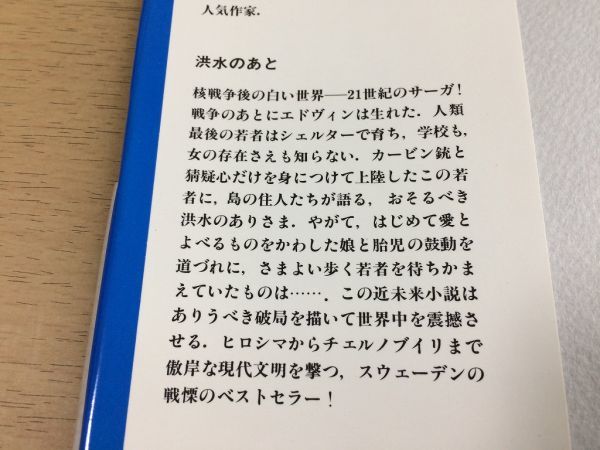 人気作家．
洪水のあと
核戦争後の白い世界──21世紀のサーガ！
戦争のあとにエドヴィンは生れた．人類
最後の若者はシェルターで育ち，学校も，
女の存在さえも知らない．カービン銃と
猜疑心だけを身につけて上陸したこの若
者に，島の住人たちが語る，おそるべき
洪水のありさま．やがて，はじめて愛と
よべるものをかわした娘と胎児の鼓動を
道づれに，さまよい歩く若者を待ちかま
えていたものは……．この近未来小説は
ありうべき破局を描いて世界中を震撼さ
せる．ヒロシマからチェルノブイリまで
傲岸な現代文明を撃つ，スウェーデンの
戦慄のベストセラー！